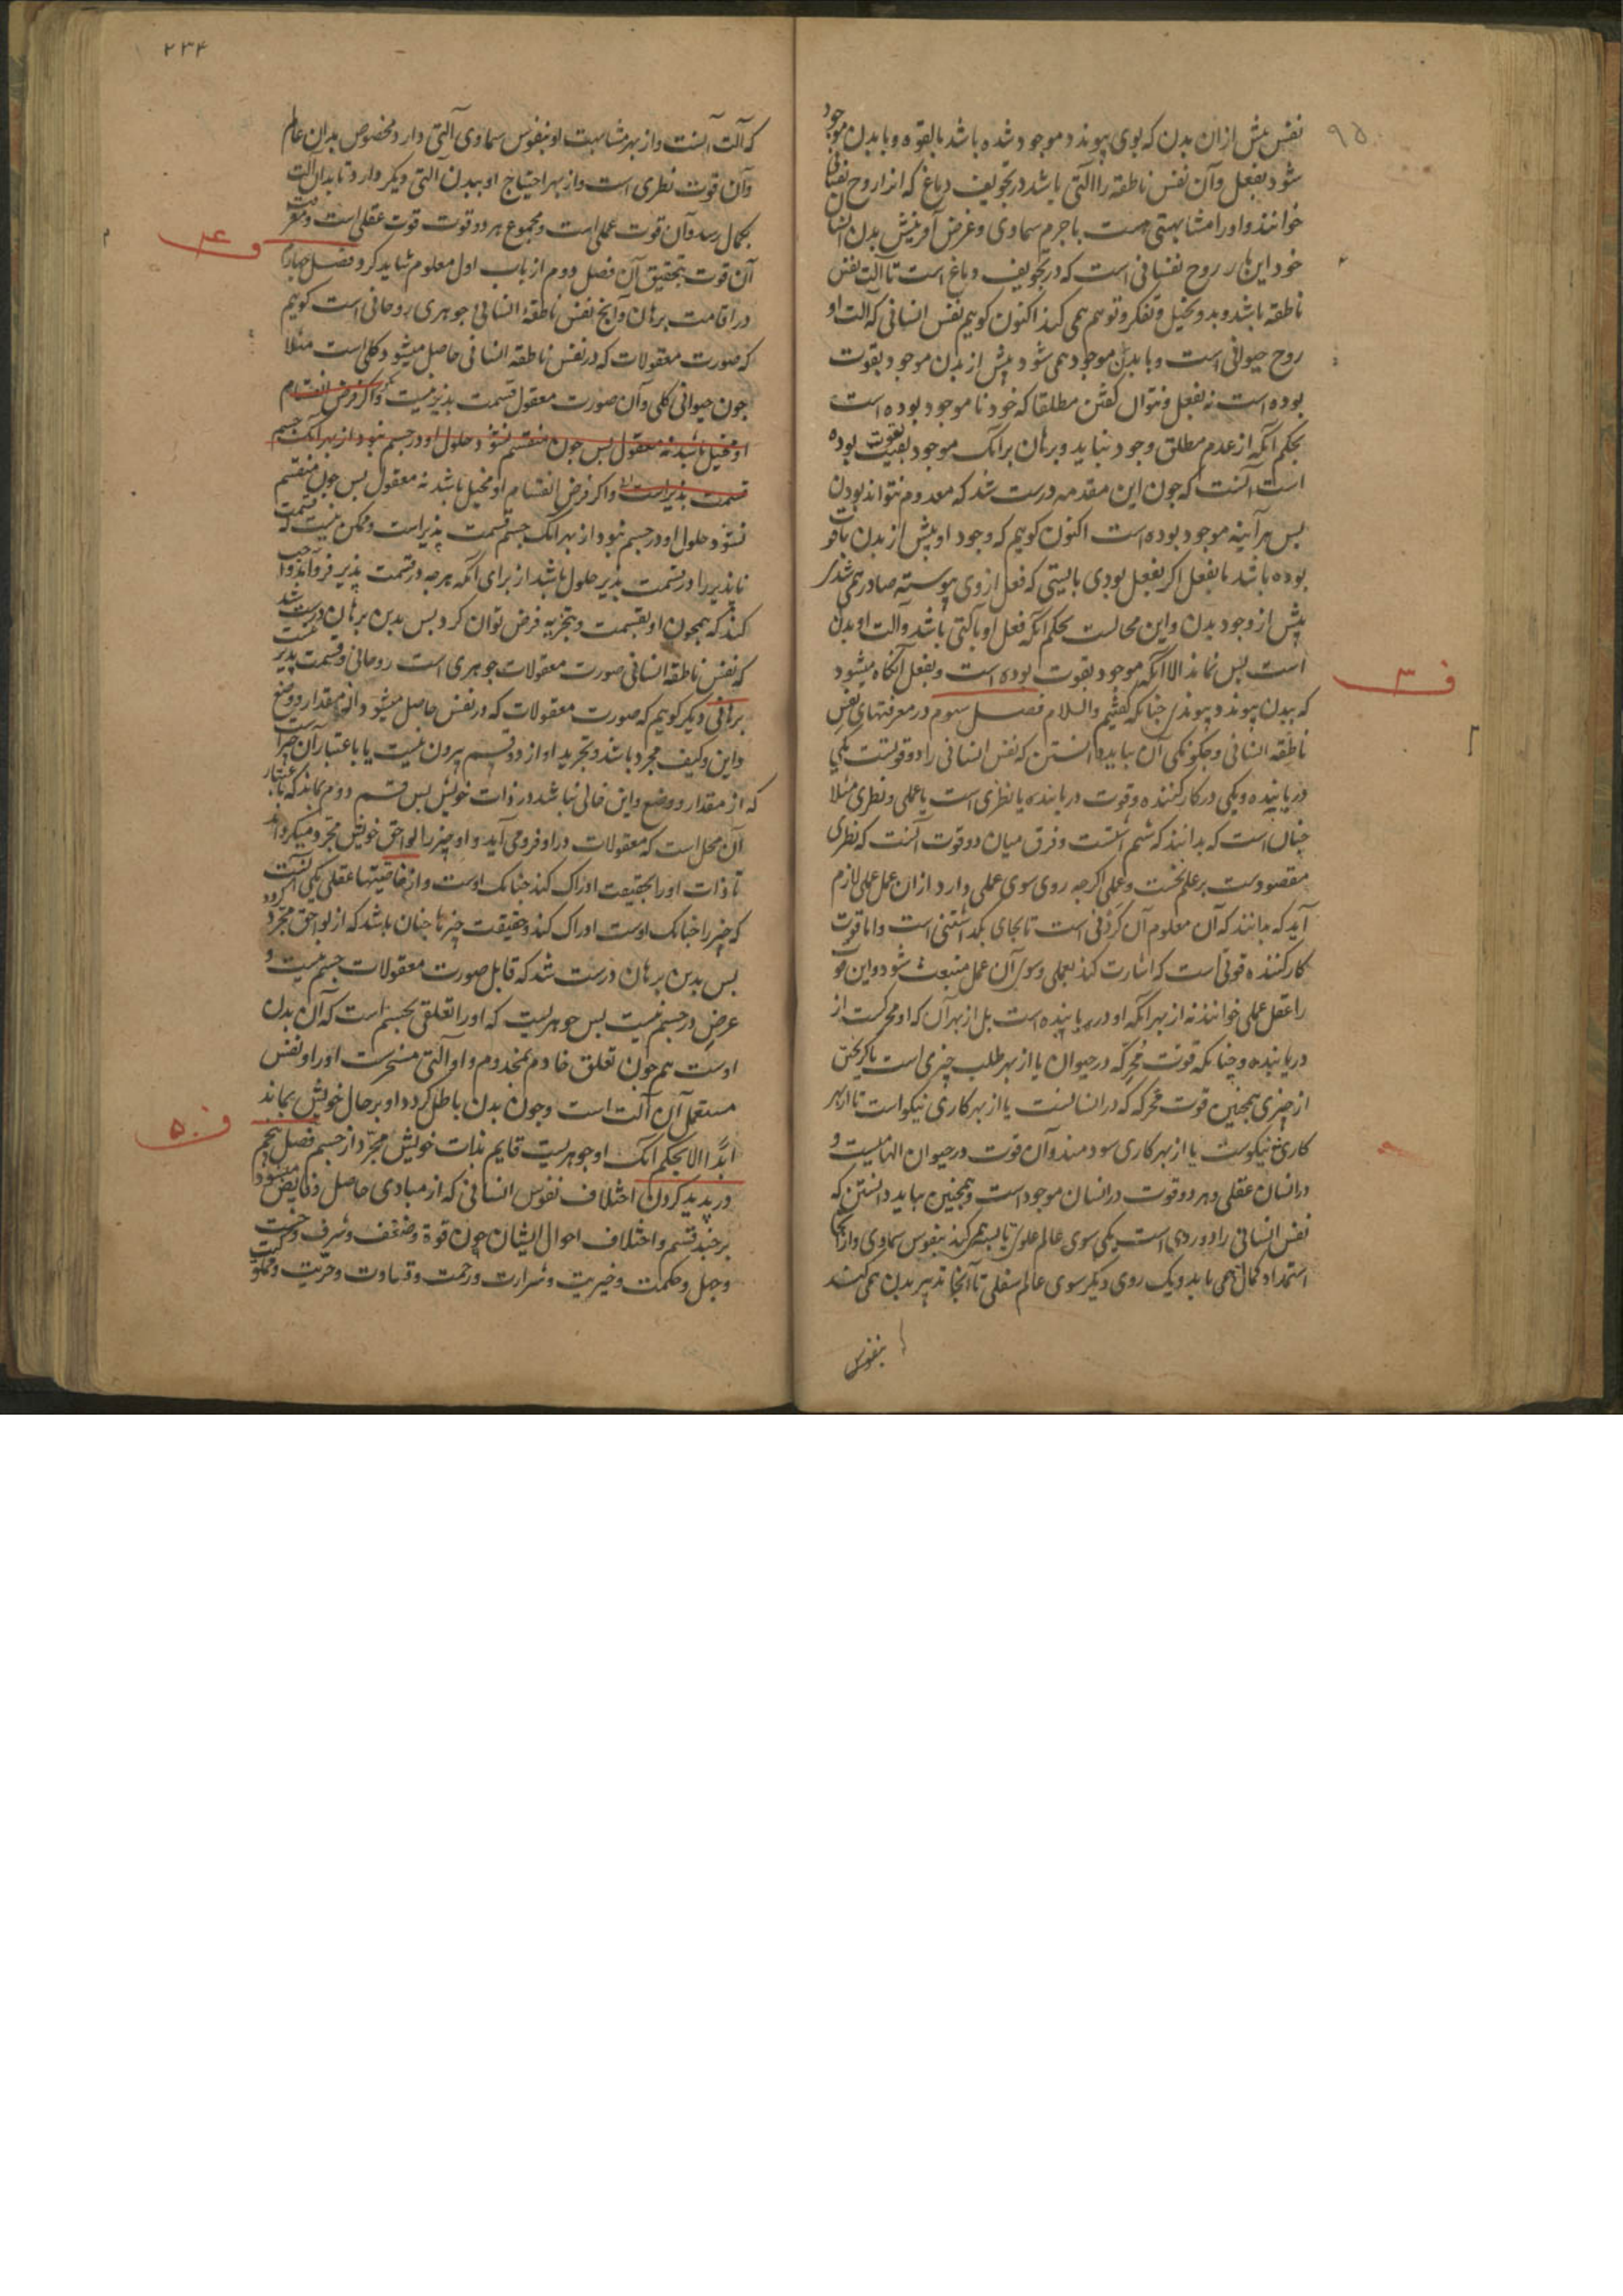 نفس پیش ازان بدن که بوی پیوندد موجود شده باشد بالقوه و با بدن موجود
شود بفعل وآن نفس ناطقه را آلتی باشد در تجویف دماغ که انرا روح نفسانی
خوانند و اورا مشابهتی هست با جرم سماوی و غرض آفرینش بدن انسان
خود این روح نفسانی است که در تجویف دماغ است تا آلت نفس
ناطقه باشد و بدو تخیل و تفکر و توهم همی کند اکنون کوییم نفس انسانی که آلت او
روح حیوانی است و با بدن موجود همی شود پیش از بدن موجود بقوت
بوده است نه بفعل و نتوان کفتن مطلقا که خود نا موجود بوده است
بحکم آنکه از عدم مطلق وجود نیاید و برهان برانک موجود بقوت بوده
است آنست که چون این مقدمه درست شد که معدوم نتواند بودن
بس هر آینه موجود بوده است اکنون کوییم که وجود او پیش از بدن یا قوت
بوده باشد یا بفعل اکر بفعل بودی بایستی که فعل از وی پیوسته صادر همی شدی
پیش از وجود بدن و این محالست بحکم آنکه فعل او بآلتی باشد و آلت او بدن
است بس نماند الا آنکه موجود بقوت بوده است و بفعل آنکاه میشود
ف ٣
که ببدن پیوندد چنانکه کفتیم والسلام فصل سوم در معرفتهای نفس
ناطقه انسانی و چکونکی آن بباید دانستن که نفس انسانی را دو قوتست یکی
دریابنده و یکی در کارکننده و قوت دریابنده یا نظری است یا عملی و نظری مثلا
چنان است که بدانند که و فرق میان دو قوت آنست که نظری
مقصودست بر علم نخست و عملی اکرچه روی سوی عملی دارد ازان عمل علمی لازم
آید که بدانند که آن معلوم آن کردنی است تا بجای بکداشتنی است و اما قوت
کارکننده قوتی است که اشارت کند بعملی و سوی آن عمل منبعث شود و این قوت
را عقل عملی خوانند نه از بهر آنکه او دریابنده است بل از بهر آن که او محرکست از
دریابنده و چنانکه قوت محرکه در حیوان یا از بهر طلب چیزی است یا کریختن
از چیزی همچنین قوت محرکه که در انسانست یا از بهر کاری نیکو است یا از بهر
کاری نیکوست یا از بهر کاری سودمند وآن قوت در حیوان الهامیست و
در انسان عقلی و هر دو قوت در انسان موجود است و همچنین بباید دانستن که
نفس انسانی را دو روی است یکی سوی عالم علوی تا بنفوس سماوی و ازانجا
استمداد کمال همی یابد و یک روی دیکر سوی عالم سفلی تا آنجا تدبیر بدن همی کند
بنفوس
٢٣۴
که آلت آنست و از بهر مشابهت او بنفوس سماوی آلتی دارد مخصوص بدان عالم
وآن قوت نظری است و از بهر احتیاج او ببدن آلتی دیکر دارد تا بدان آلت
بکمال رسد وآن قوت عملی است و مجموع هر دو قوت قوت عقلی است و معرفت
ف ۴
آن قوت بتحقیق آن فصل دوم از باب اول معلوم شاید کرد فصل چهارم
در اقامت برهان وآنچ نفس ناطقه انسانی جوهری روحانی است کوییم
که صورت معقولات که در نفس ناطقه انسانی حاصل میشود کلی است مثلا
چون حیوانی کلی وآن صورت معقول قسمت پذیر نیست و اکر فرض انقسام
او مخیل باشد نه معقول بس چون منقسم نشود حلول او در جسم نبود از بهر آنک جسم
قسمت پذیر است و اکر فرض انقسام او مخیل باشد نه معقول بس چون منقسم
نشود حلول او در جسم نبود از بهر آنک جسم قسمت پذیر است و ممکن نیست که قسمت
ناپذیر را در قسمت پذیر حلول باشد از برای آنکه هرچه در قسمت پذیر فرو آید واجب
کند که همچون او بقسمت و تجزیه فرض توان کرد بس بدین برهان درست شد
که نفس ناطقه انسانی صورت معقولات جوهری است روحانی و قسمت پذیر نیست
برهانی دیکر کوییم که صورت معقولات که در نفس حاصل میشود از مقدار و وضع
و این و کیف مجرد باشد و تجرید او از دو قسم بیرون نیست یا باعتبار آن چیز است
که از مقدار و وضع و این خالی نباشد در ذات خویش بس قسم دوم بماند که باعتبار
آن محل است که معقولات در او فرو می آید و او چیز را لواحق خویش مجرد میکرداند
تا ذات اورا بحقیقت ادراک کند چنانک اوست و از خاصیتها عقلی یکی آنست
که چیز را چنانک اوست ادراک کند و حقیقت چیزها چنان باشد که از لواحق مجرد کردد
بس بدین برهان درست شد که قابل صورت معقولات جسم نیست و
عرض در جسم نیست بس جوهریست که اورا تعلقی بجسم است که آن بدن
اوست هم چون تعلق خادم بمخدوم و او آلتی مسخرست اورا و نفس
مستعمل آن آلت است و چون بدن باطل کردد او بر حال خویش بماند
ف ۵
ابدا الا بحکم آنک او جوهریست قایم بذات خویش مجرد از جسم فصل پنجم
در پدید کردن اختلاف نفوس انسانی که از مبادی حاصل و فایض میشود
بر چند قسم و اختلاف احوال ایشان چون قوة و ضعف و شرف و خست
و جهل و حکمت و خیریت و شرارت و رحمت و قساوت و حریت و مملوکیت